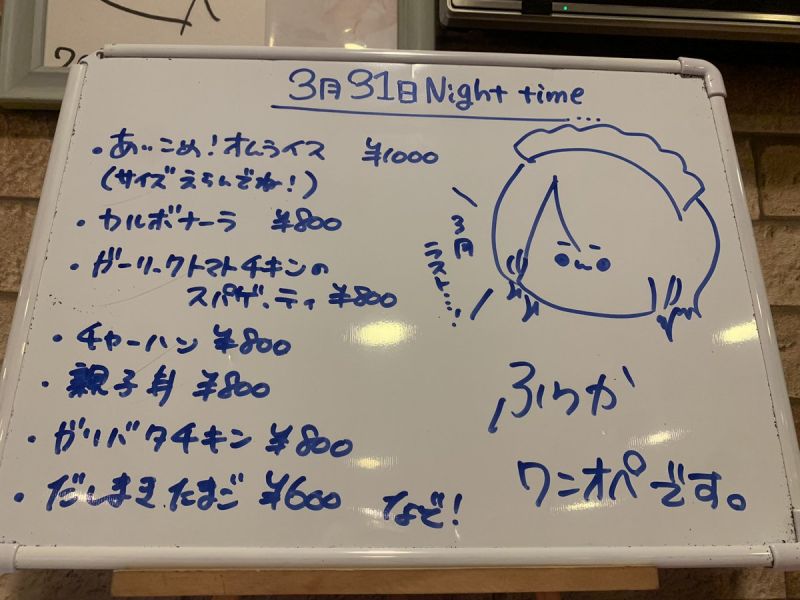 3月31日 Night time
・あいこめ!オムライス ¥1000
(サイズえらんでね!)
・カルボナーラ ¥800
・ガーリックトマトチキンの
スパゲッティ ¥800
・チャーハン ¥800
・親子丼 ¥800
・ガリバタチキン ¥800
・だしまきたまご ¥600 など!
3月
ラスト…!
ふうか
ワンオペです。